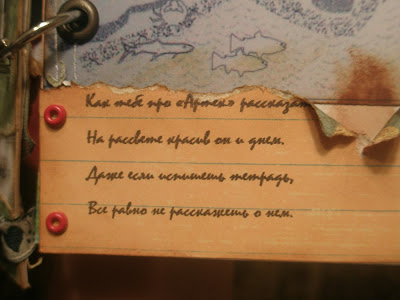 Как тебе про «Артек» рассказать
На рассвете красив он и днем.
Даже если испишешь тетрадь,
Все равно не расскажешь о нем.